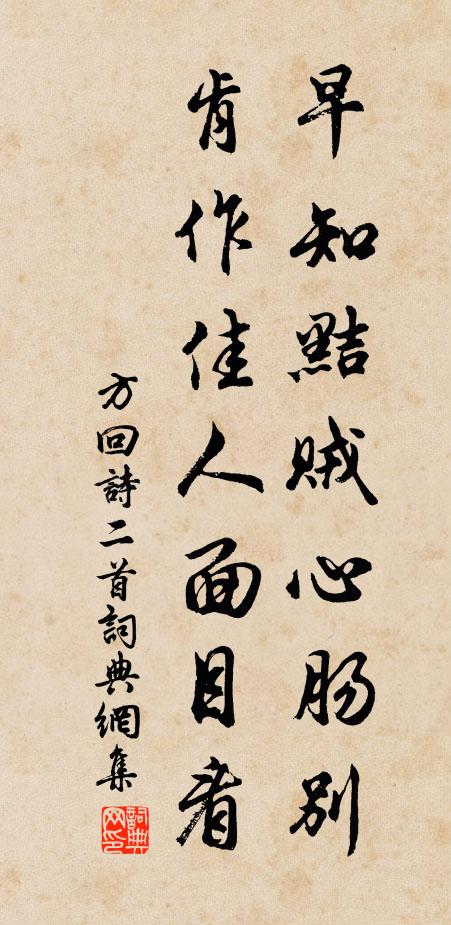 早知黠賊心肠别
肯作佳人面目看
方回詩二首詞典網集
詞典網印